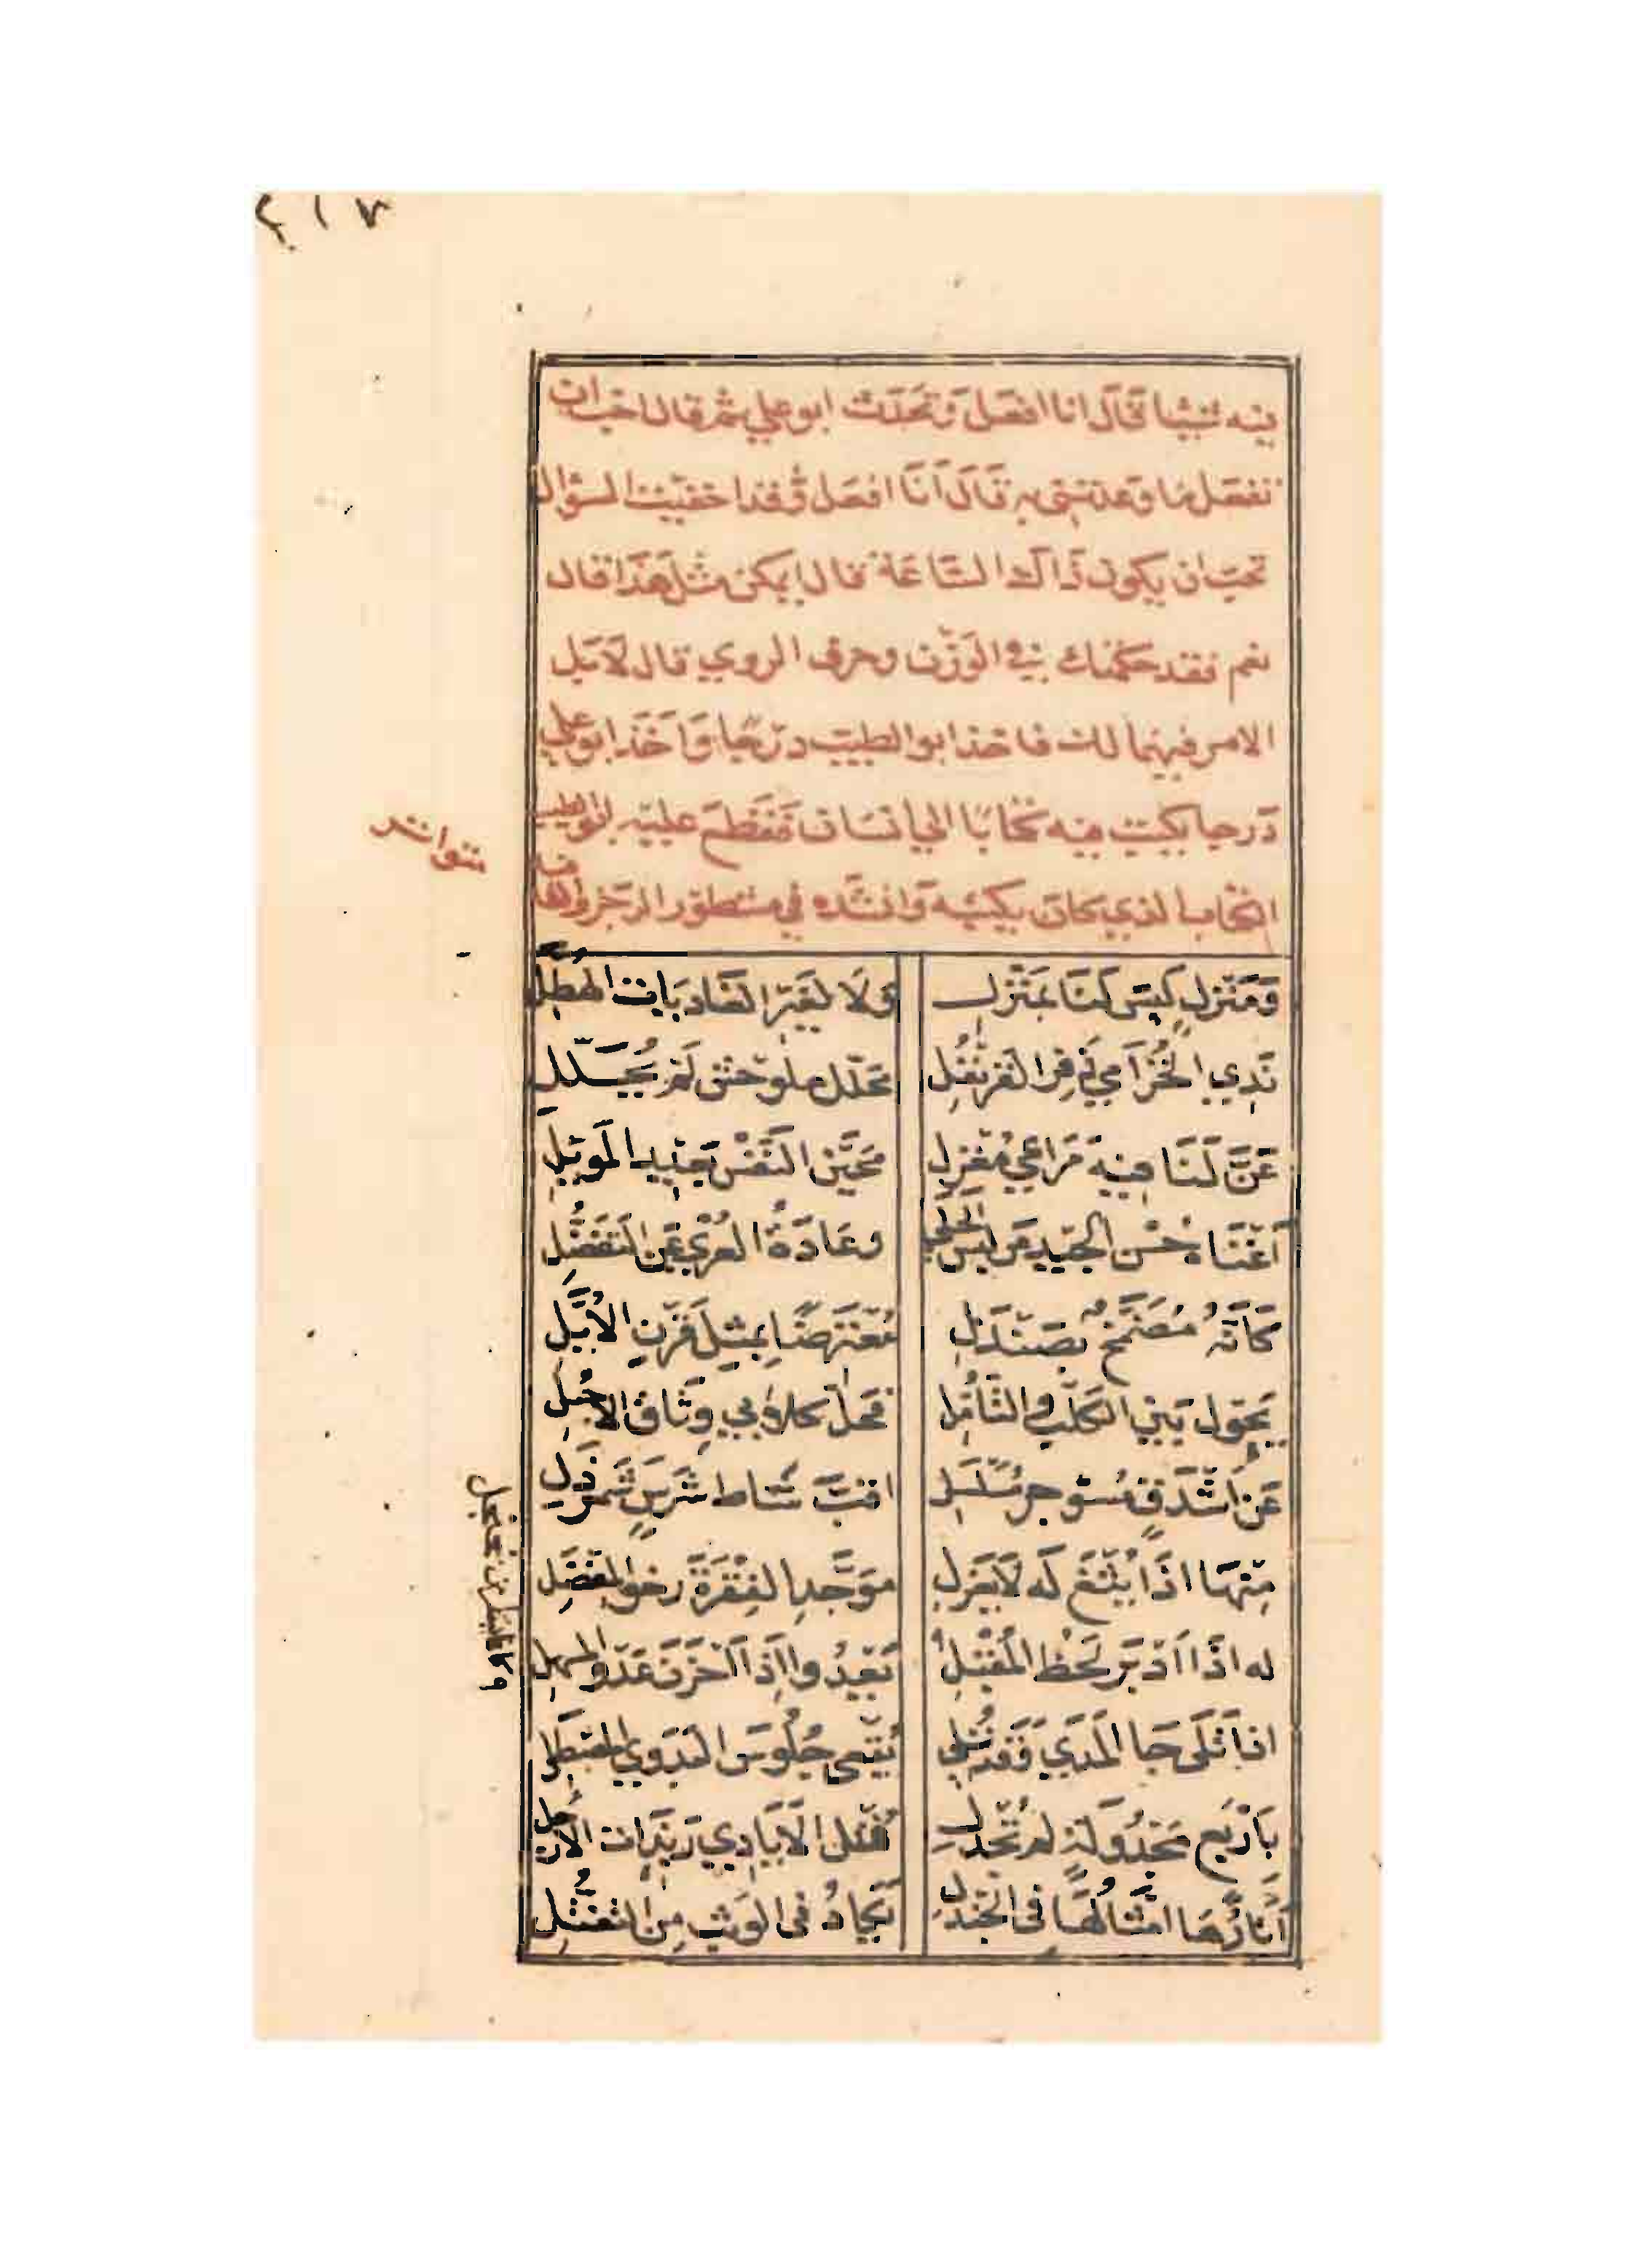 ٢١٧
فيه شيئا فقال انا افعل وتحدث ابو علي ثم قال احب ان
تفعل ما وعدتني به قال انا افعل وقد اخفيت السؤال
تحب ان يكون ذاك الساعة قال ايمكن مثل هذا قال
نعم فقد حكمتك في الوزن وحرف الروي قال لا بل
الامر فيهما لك فاخذ ابو الطيب درجا وَاخَذ ابو علي
درجا يكتب فيه كتابا الى انسان فقطع عليه ابو الطيب
الكتاب الذي كان يكتبه وَانشده في مشطور الرجز
وَمَنْزِلٍ لَيسَ لَنَا بمَنْزِلِ وَلَا لغَيْرِ الغَادِيَاتِ الهُطَّلِ
نَدِي الخُزَامَى ذَفِرِ القَرَنْفُلِ مُحَلَّلٍ ملوَحْشِ لَمْ يُحَلَّلِ
عَنَّ لَنَا فِيهِ مُرَاعِي مُغْزِلِ مُحَيَّنِ النَّفْسِ بَعِيدِ المَوْئِلِ
أَغْنَاهُ حُسْنُ الجِيدِ عَن لُبْسِ الحُلِي وعَادَةُ العُرْيِ عَنِ التَّفَضُّلِ
كَأَنَّهُ مُضَمَّخٌ بصَنْدَلِ مُعْتَرِضًا بِمِثْلِ قَرْنِ الأُيَّلِ
يَحُولُ بَيْنَ الكَلْبِ والتَّأَمُّلِ فَحَلَّ كلابي وِثَاقَ الاحْبُلِ
عَنْ اشْدَقٍ مُسَوْجَرٍ مُسَلْسَلِ اقَبَّ سَاطٍ شَرِسٍ شَمَرْدَلِ
مِنْهَا اذَا يُثْغَ لَه لَا يَغْزَلِ مُوَجَّدِ الفِقْرَةِ رخو المِفْصَلِ
له اذَا أَدْبَرَ لَحْظُ المُقْبِلِ يَعْدُو اذَا أَحْزَنَ عَدْوَ المُسْهِلِ
اذَا تَلَى جَا المَدَى وَقَدْ تُلِي يُقْعِي جُلُوسَ البَدَوِيِّ المُصْطَلِي
بِأَرْبَعٍ مَجْدُولَةٍ لم تُجْدَلِ فُتْلِ الأَيَادِي رَبِذَاتِ الأَرْجُلِ
آثَارُهَا امْثَالُهَا في الجَنْدَلِ يَكَادُ في الوَثْبِ مِنَ التَّفَتُّلِ